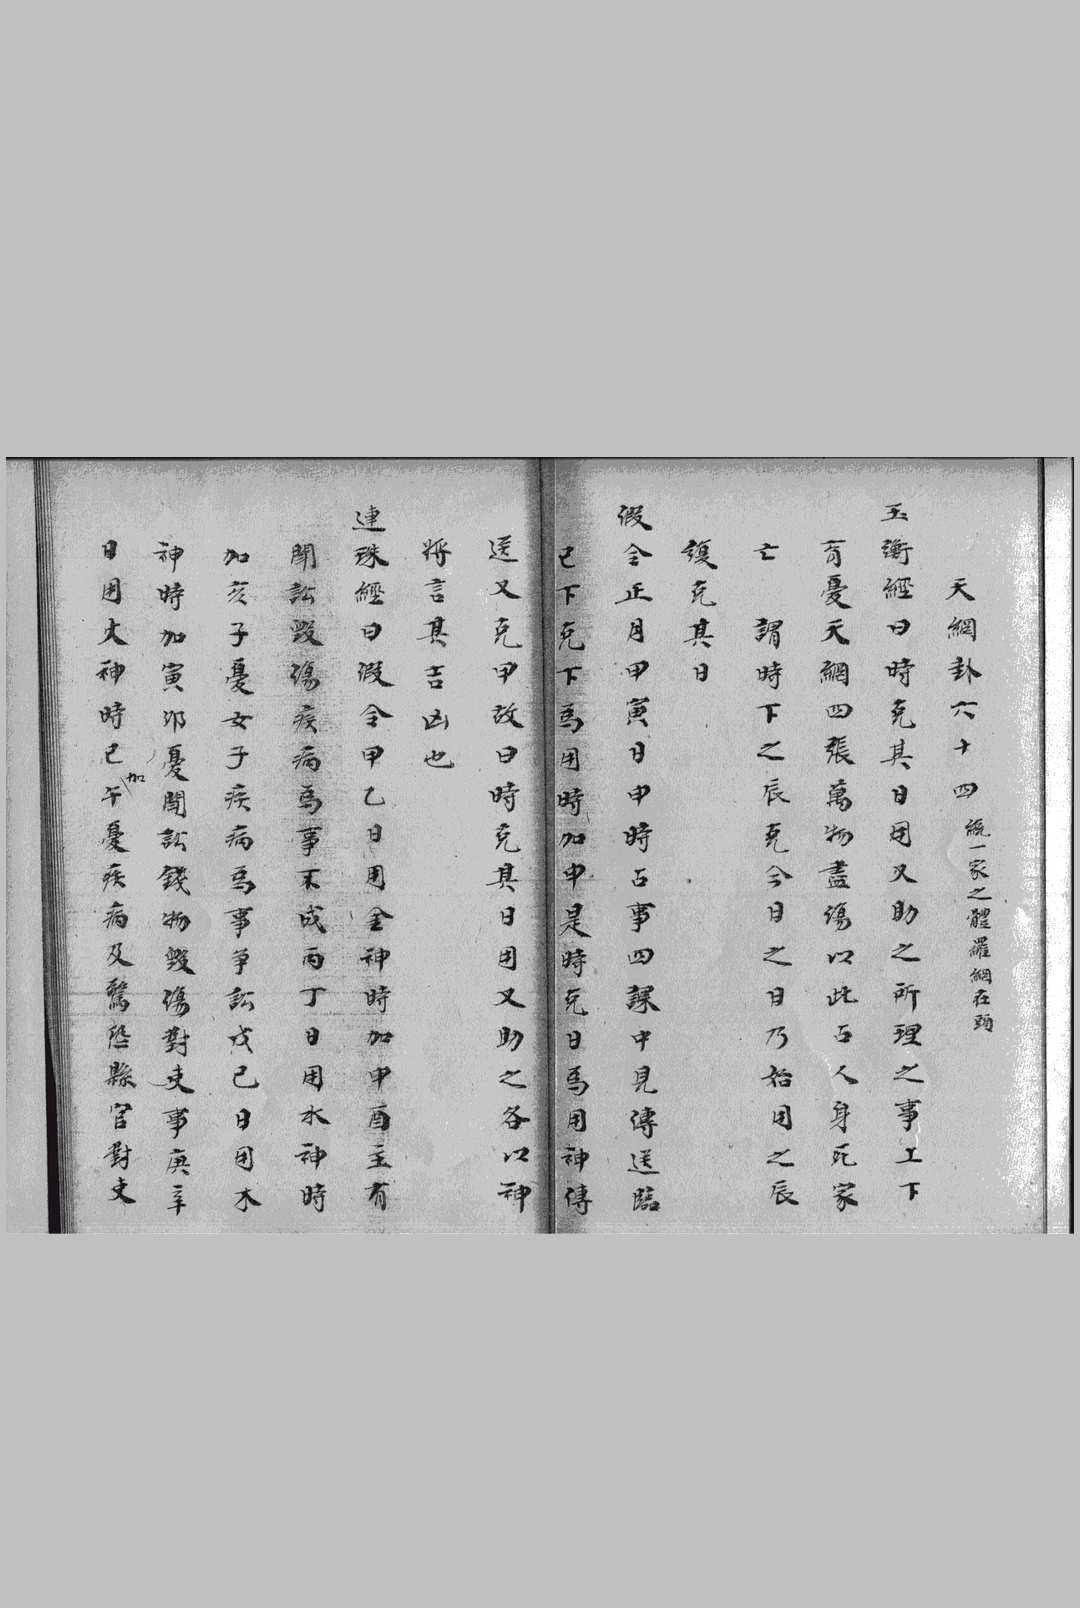 天網卦六十四 統一家之體羅網在頭
玉衡經曰時克其日用又助之所理之事上下
有憂天網四張萬物盡傷以此占人身死家
亡 謂時下之辰克今日之日乃始用之辰
復克其日
假令正月甲寅日申時占事四課中見傳送臨
巳下克下爲用時加申是時克日爲用神傳
送又克甲故曰時克其日用又助之各以神
將言其吉凶也
連珠經曰假令甲乙日用金神時加申酉主有
鬪訟毀傷疾病爲事不成丙丁日用水神時
加亥子憂女子疾病爲事爭訟戊己日用木
神時加寅卯憂鬪訟錢物毀傷對吏事庚辛
日用火神時加巳午憂疾病及驚恐縣官對吏